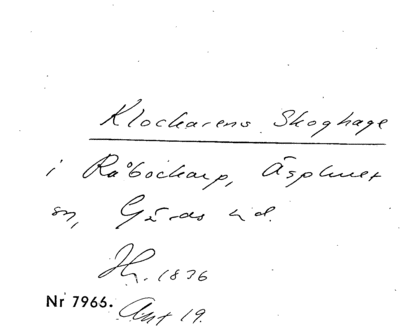 Klockarens Skoghage
i Råbockarp, Äsphult
sn, Gärds hd.
Hr. 1836
Nr 7966. Akt 19.